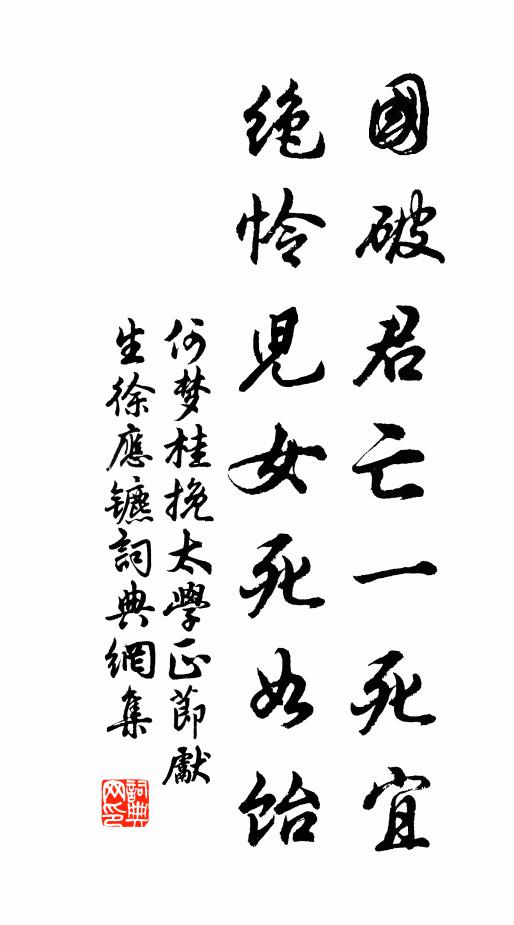 國破君亡一死宜
絶怜児女死如飴
何梦桂挽太學正節獻
生徐應鑣詞典網集
詞典
网印